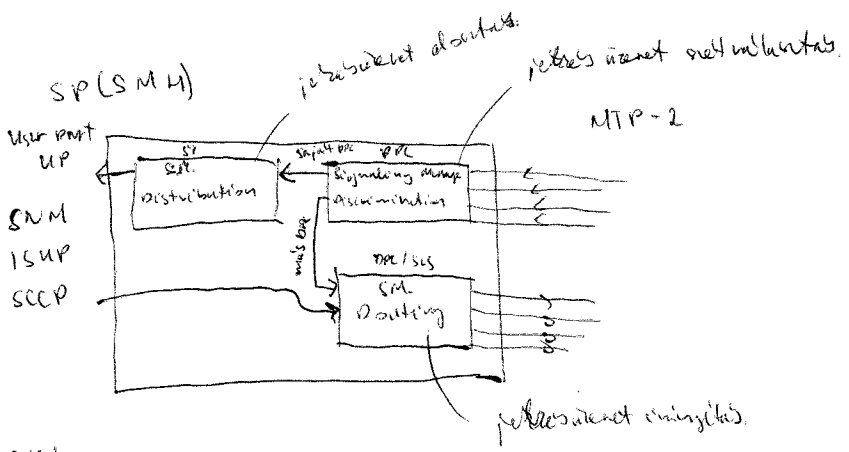 SP (SMH)
jelzésüzenet elosztás.
jelzés üzenet szétválasztás.
MTP-2
User part
UP
SNM
ISUP
SCCP
SM.
Distribution
saját DPC
DPC
Signaling Message
Discrimination
más DPC
DPC/SLS
SM.
Routing
jelzésüzenet irányítás.